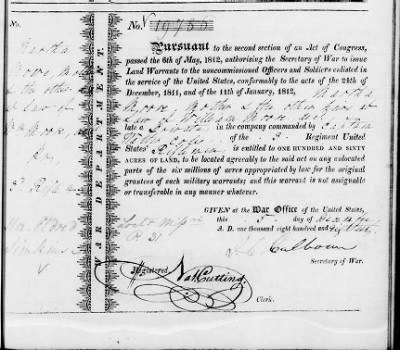 No.
No. 19755
Martha
Moore, Mother
& the other
at law of
Wm Moore, dec
WAR DEPARTMENT.
Pursuant to the second section of an Act of Congress,
passed the 6th of May, 1812, authorising the Secretary of War to issue
Land Warrants to the noncommissioned Officers and Soldiers enlisted in
the service of the United States, conformably to the acts of the 24th of
December, 1811, and of the 11th of January, 1812, Martha
Moore, Mother & the other heirs at
Law of William Moore dec
late a in a company commanded by Captn
of the 3 Regiment United
States Rifle is entitled to ONE HUNDRED AND SIXTY
ACRES OF LAND, to be located agreeably to the said act on any unlocated
parts of the six millions of acres appropriated by law for the original
grantees of such military warrants; and this warrant is not assignable
or transferable in any manner whatever.
GIVEN at the War Office of the United States,
this day of
A. D. one thousand eight hundred and
J C Calhoun
Secretary of War.
Registered Nat Cutting
Clerk.